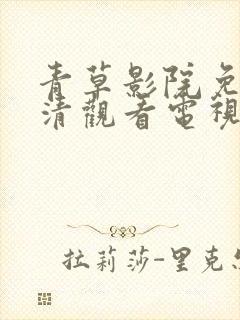 青草影院免
清觀看電視
拉莉莎-里克